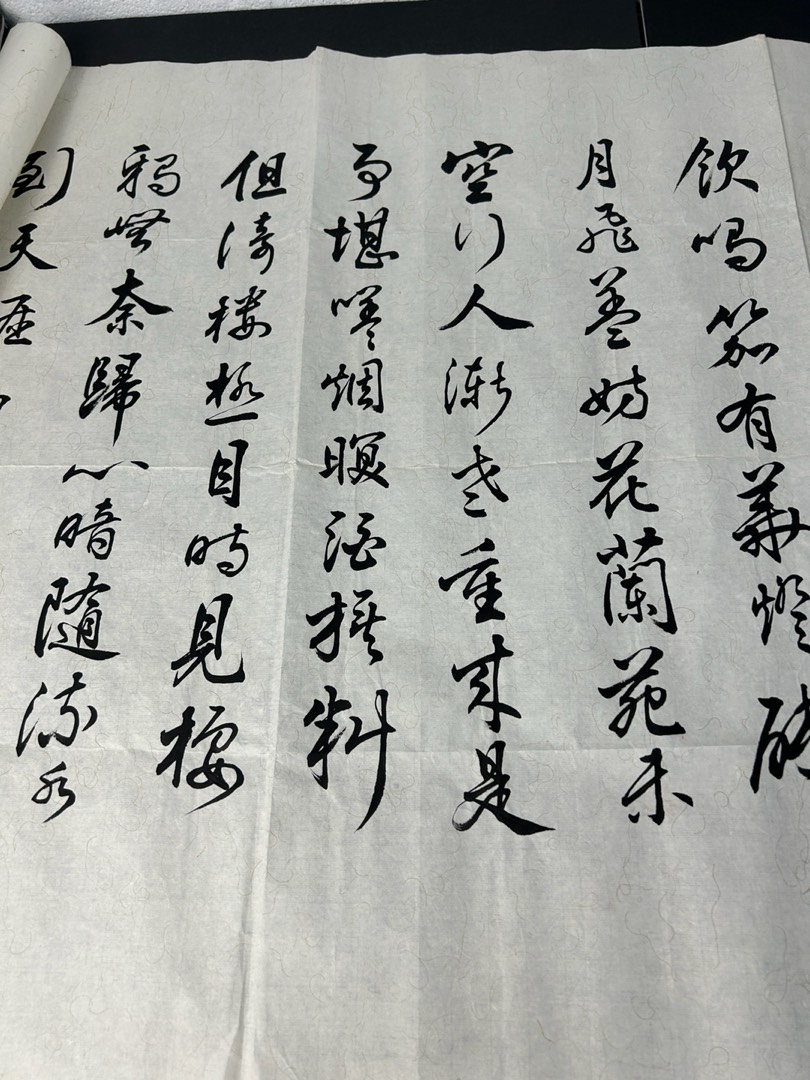 飲鳴笳有華燈碍
月飛蓋妨花蘭苑未
空行人漸老重來是
事堪嗟烟暝酒旗斜
但倚樓極目時見棲
鴉無奈歸心暗隨流水
到天涯